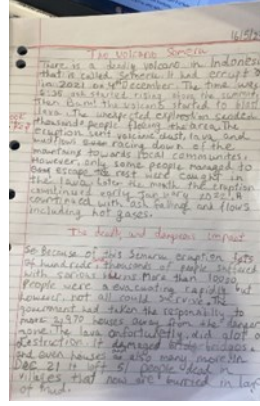 16/5/2
The Volcano Semeru
There is a deadly volcano in Indones
that is called Semeru. It had errupt
in 2021 on 4th December. The time was
and started rising along the summit
Then Bam! the volcano started to blast
lava. The unexpected explosion sended
thousands people fleeing the area. The
eruption sent volcanic dust, lava and
mudflows racing down of the
mountains towards local communites.
However, only some people managed to
escape the rest were caught in
the lava. Later the month the eruption
continued early January 2022. It
countinued with ash falling and flows
including hot gases.
The deadly and dangerous impact
Because of this Semeru eruption lots
of hundreds, thousands of people suffered
with serious More than 10000
People were evacuating rapidly but
however, not all could survive. The
government had taken the responsibility to
move 2,970 houses away from the danger
more. The lava unfortunetly did alot of
destruction. It damaged bridges,
and even houses also many more. In
DEC 21 it left 51 people dead in
villages that now are burried in lay
of mud.